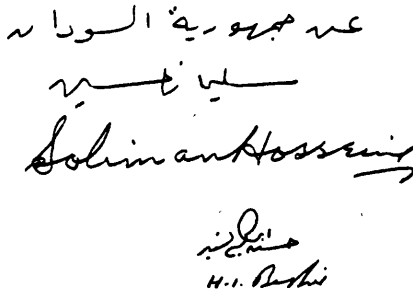 عن جمهورية السودان
سليمان حسين
Soliman Hossein
H.I. Beshir